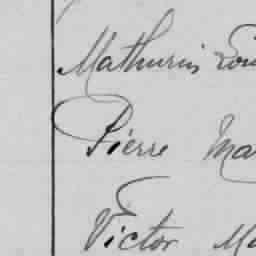 Mathurin Lou
Pierre Ma
Victor Ma